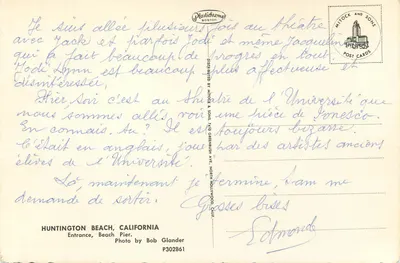 Je suis allée plusieurs fois au théatre
avec Jack et parfois Jodi et même Jacqueline
qui a fait beaucoup de progrès en tout.
Jodi Lynn est beaucoup plus affectueuse et
désintéressée.
Hier soir c'est au théatre de l'Université que
nous sommes allés voir une pièce de Ionesco.
En connais-tu? Il est toujours bizarre.
C'était en anglais, joué par des artistes anciens
élèves de l'Université.
Là, maintenant je termine, Sam me
demande de sortir.
Grosses bises
Edmonde
Plastichrome
MITOCK AND SONS
POST CARDS
HUNTINGTON BEACH, CALIFORNIA
Entrance, Beach Pier.
Photo by Bob Glander
P302861